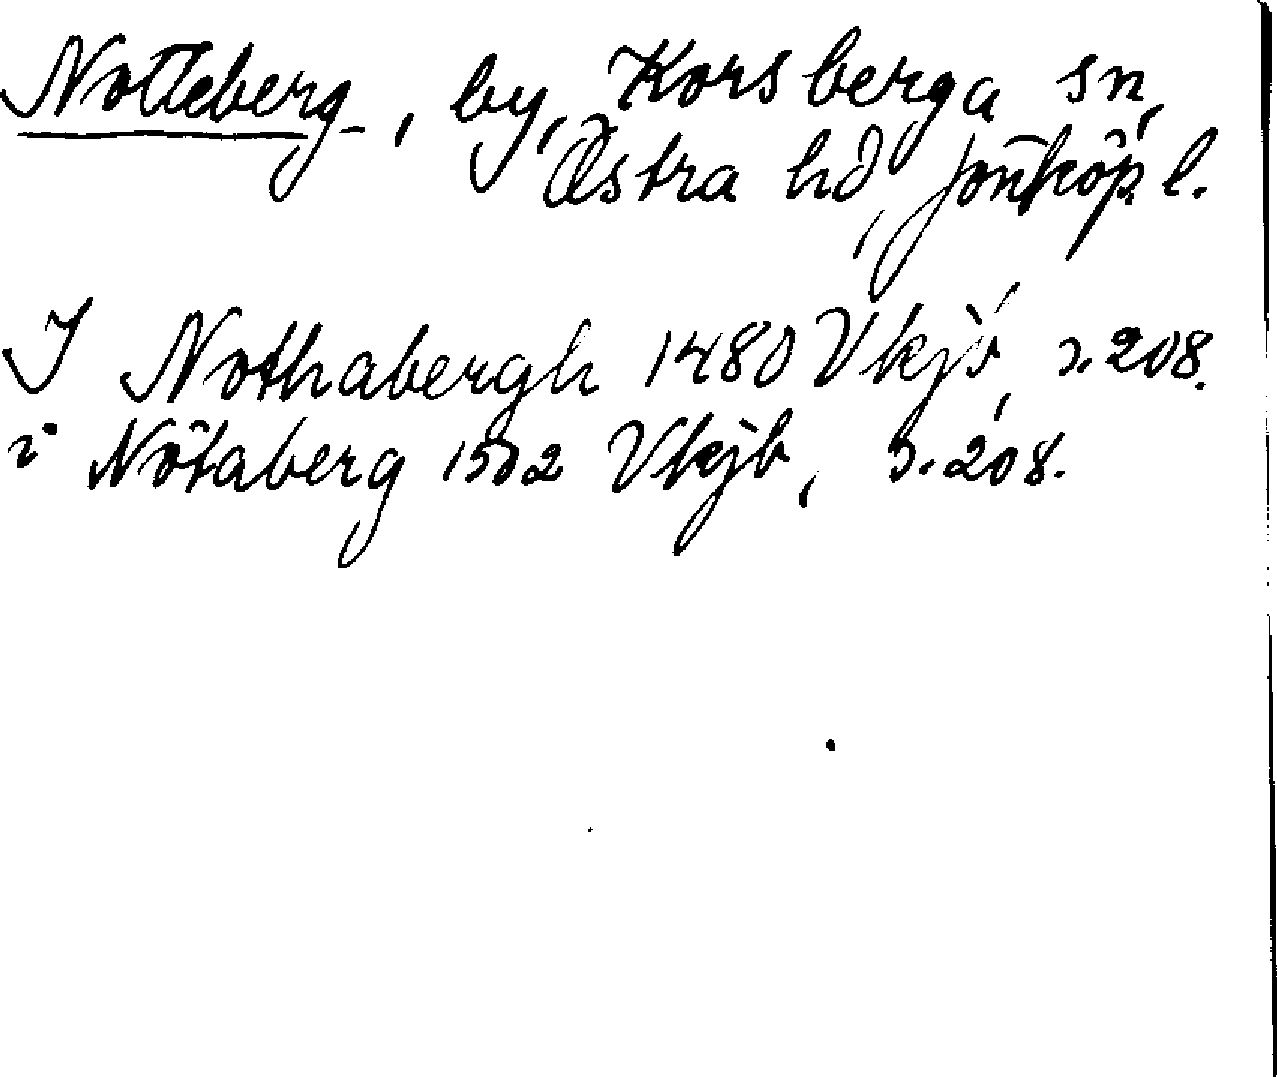 Notteberg, by, Korsberga sn,
Östra hd, Jönköp. l.
I Nothabergh 1480 Vkjb, s. 208.
i Nötaberg 1502 Vkjb, s. 208.